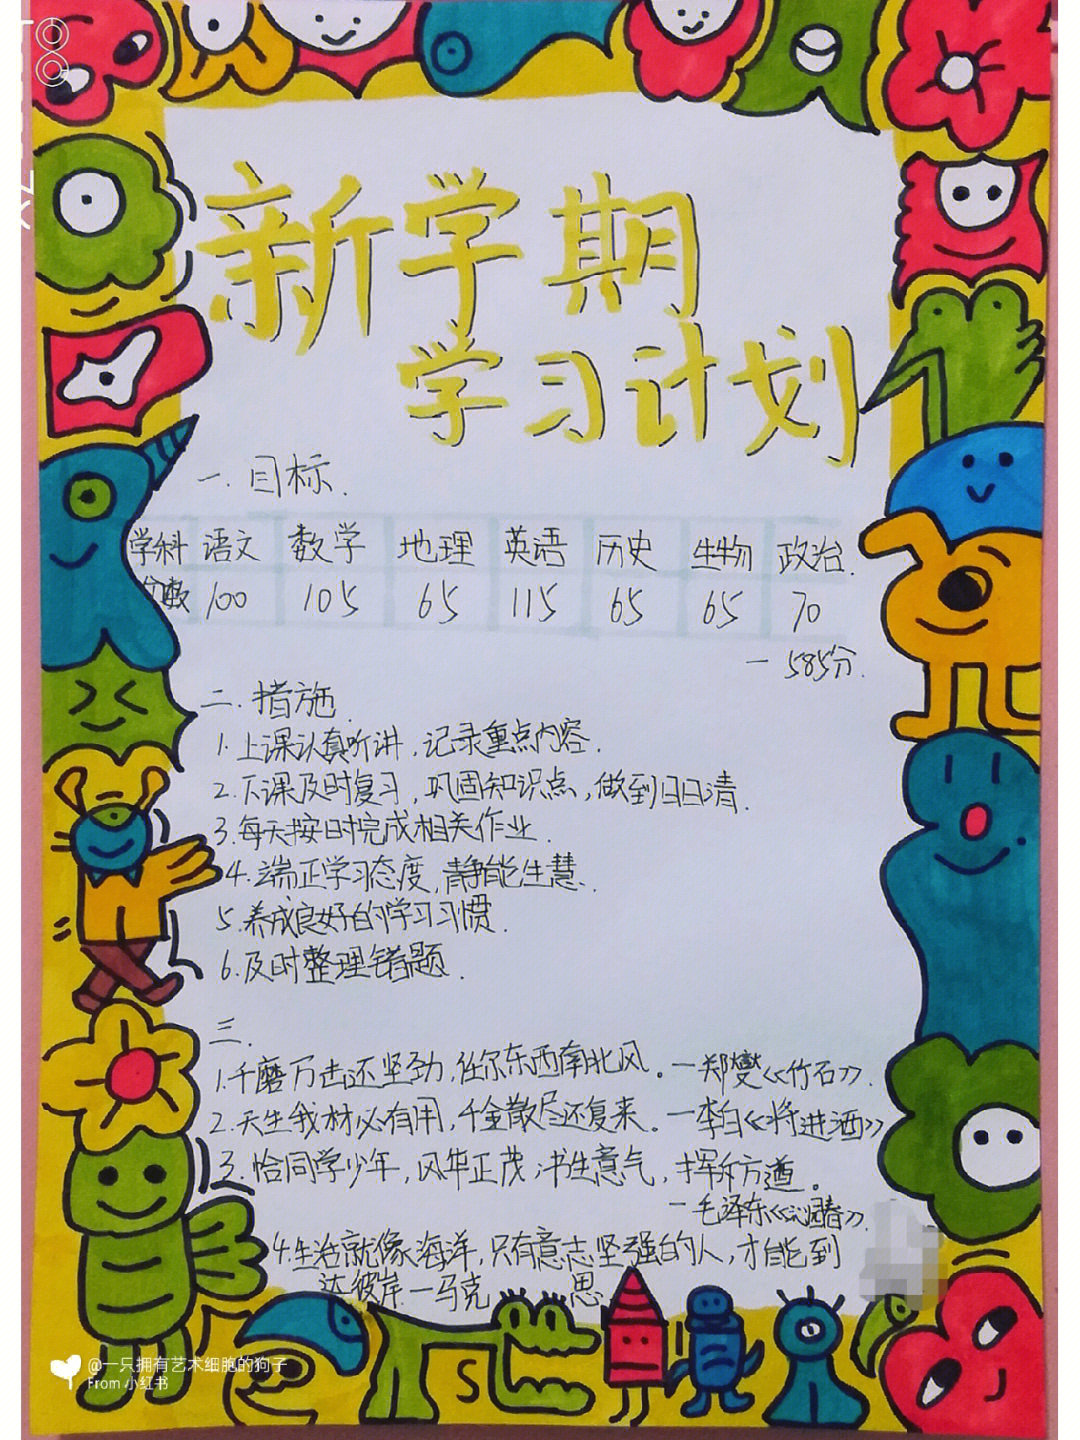 新学期
学习计划
一.目标.
学科 语文 数学 地理 英语 历史 生物 政治.
分数 100 105 65 115 65 65 70
一 585分.
二.措施.
1.上课认真听讲,记录重点内容.
2.下课及时复习,巩固知识点,做到日日清.
3.每天按时完成相关作业.
4.端正学习态度,静能生慧.
5.养成良好的学习习惯.
6.及时整理错题.
三.
1.千磨万击还坚劲,任尔东西南北风。一郑燮《竹石》.
2.天生我材必有用,千金散尽还复来。一李白《将进酒》
3.恰同学少年,风华正茂;书生意气,挥斥方遒。
一毛泽东《沁园春》.
4.生活就像海洋,只有意志坚强的人,才能到
达彼岸.一马克 思.
@一只拥有艺术细胞的狗子
From 小红书